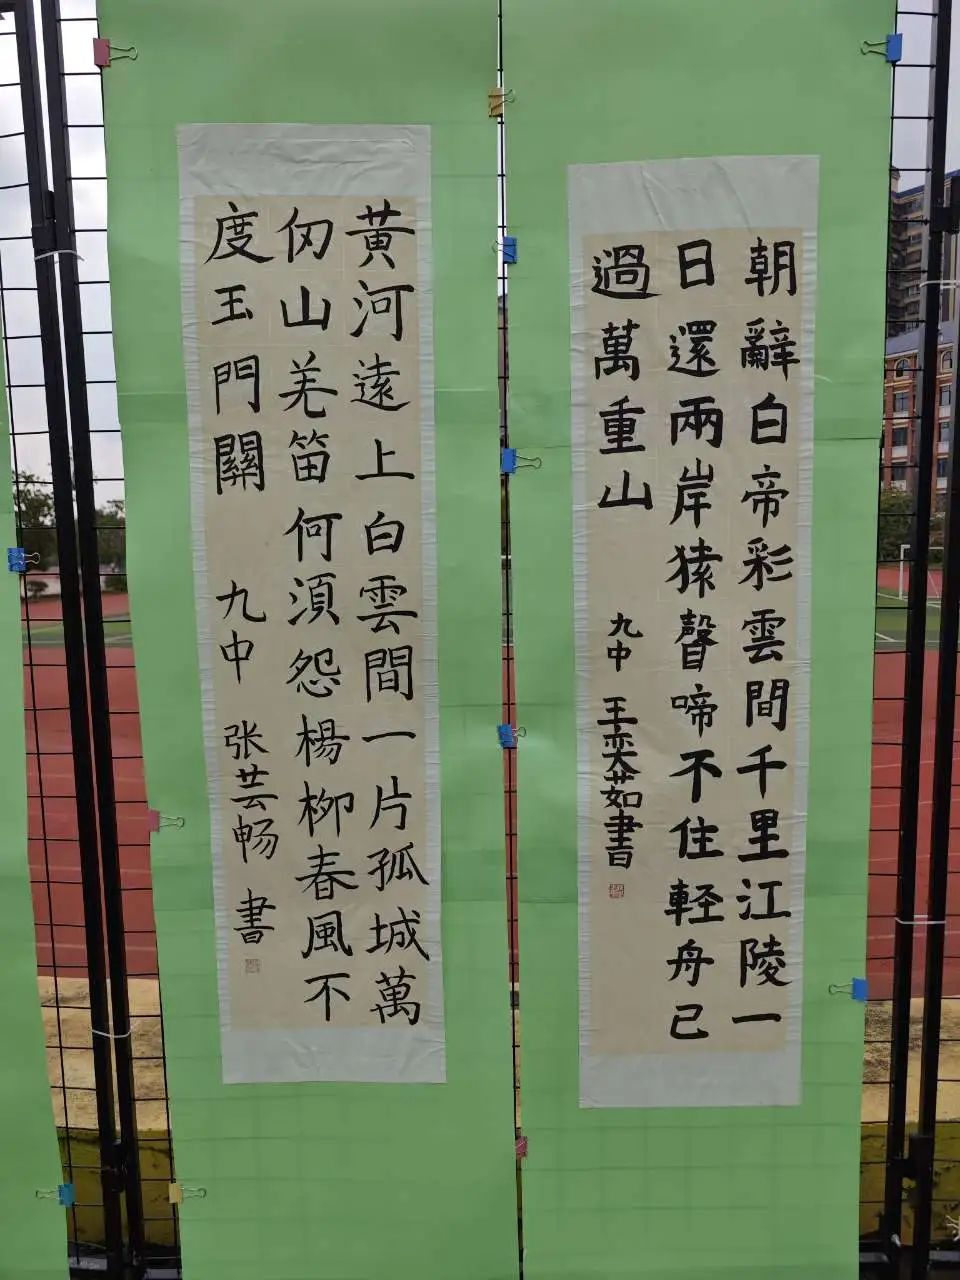 朝辭白帝彩雲間千里江陵一
日還兩岸猿聲啼不住軽舟已
過萬重山 九中 王奕茹書
黃河遠上白雲間一片孤城萬
仞山羌笛何須怨楊柳春風不
度玉門關 九中 张芸畅 書